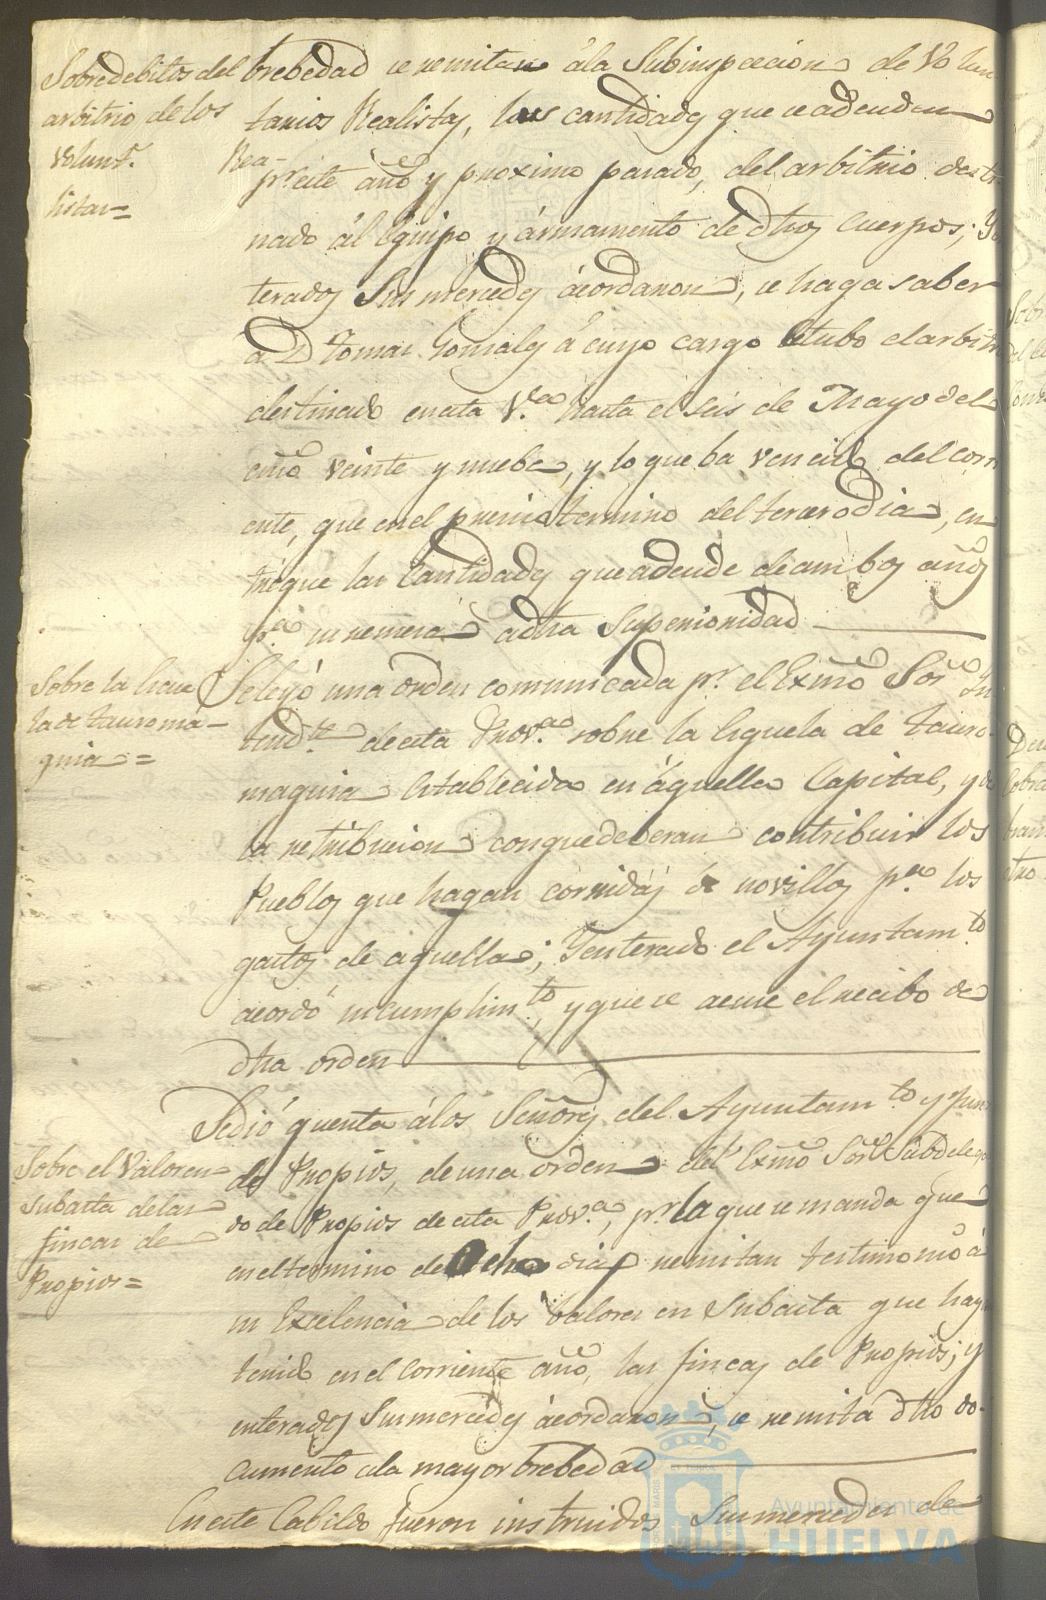 Sobre debitos del
arbitrio de los
Volunt.s Rea-
listas=
brebedad se remitan á la Subinspeccion de Volun
tarios Realistas, las cantidades que se adeuden
pr. este año y proximo pasado, del arbitrio desti
nado al Equipo y ármamento de dhos Cuerpos; Yn
terados Sus mercedes ácordaron, se haga saber
a Dn Tomas Gonsales á cuyo cargo estubo el arbitrio
destinado en esta V.a hasta el seis de Mayo del
año veinte y nuebe, y lo que ba vencido del corri
ente, que en el preciso termino del tercero dia, en
tregue las Cantidades que adeude de ambos años
pa. su remesa á dha Superioridad
Sobre la Escue
la de tauroma-
quia=
Se leyó una orden comunicada pr. el Exmo Sor. In
tend.te de esta Prov.a sobre la Esquela de tauro-
maquia Establecida en áquella Capital, y de
la retribucion con que deberan contribuir los
Pueblos que hagan corridas de novillos pa. los
gastos de aquella; Y enterado el Ayuntam.to
acordó su cumplim.to, y que se acuse el recibo de
dha orden
Sobre el Valor en
Subasta de las
fincas de
Propios=
Se dió quenta á los Señores del Ayuntam.to y Jun
de Propios, de una orden del Exmo Sor. Subdelega
do de Propios de esta Prov.a, pr. la que se manda que
en el termino de Ocho dias remitan testimonio á
su Excelencia de los valores en Subasta que hayan
tenido en el corriente año, las fincas de Propios; y
enterados Sus mercedes ácordaron, se remita dho do-
cumento a la mayor brebedad
En este Cabildo fueron instruidos Sus mercedes de
Ayuntamiento de
HUELVA